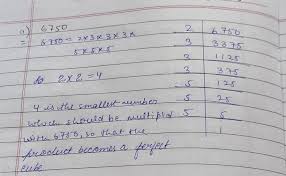 a) 6750
= 6750 = 2×3×3×3×
5×5×5
2×2=4
4 is the smallest number
which should be multiplied
with 6750, so that the
product becomes a perfect
cube
2 6750
3 3375
3 1125
3 375
5 125
5 25
5 5
1